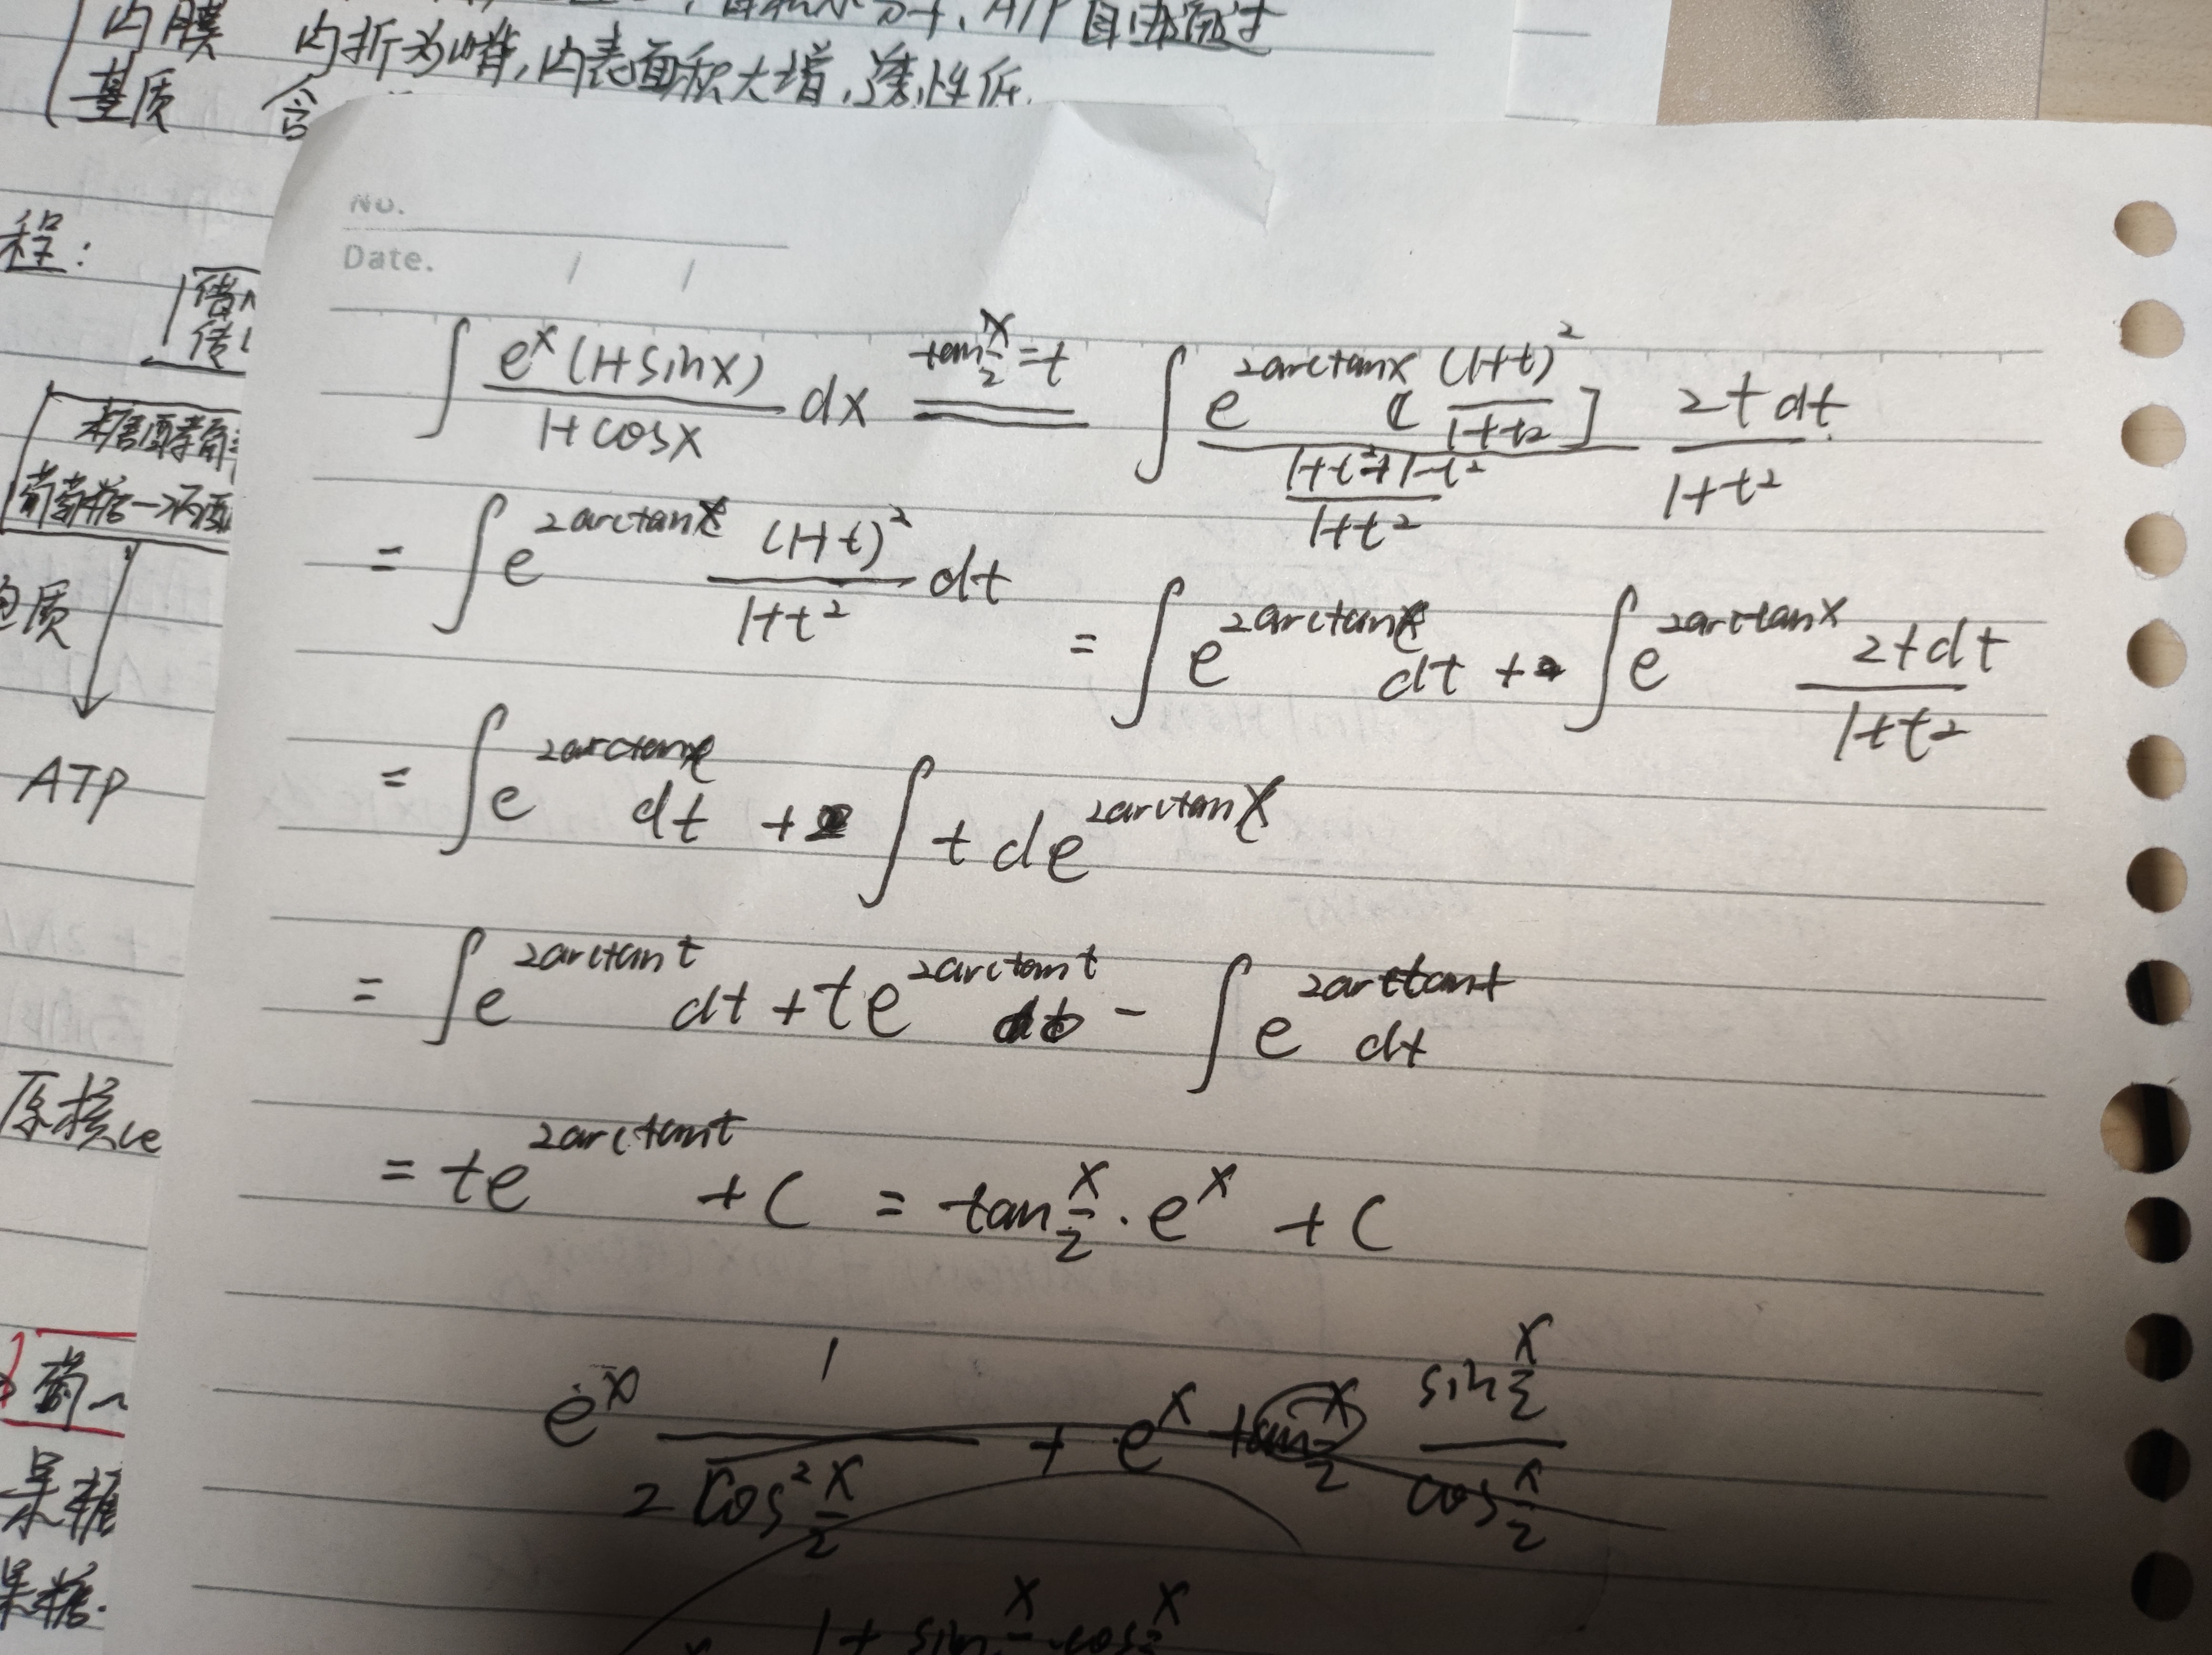 内膜 内折为嵴,内表面积大增,透性低.
基质 含
程:
No.
Date. / /
∫ e^x(1+sinx)/(1+cosx) dx =(tan x/2 = t)= ∫ e^(2arctanx) [(1+t)^2/(1+t2)] / ((1+t^2+1-t^2)/(1+t^2)) 2t dt/(1+t^2)
= ∫ e^(2arctant) (1+t)^2/(1+t^2) dt = ∫ e^(2arctant) dt + ∫ e^(2arctanx) 2tdt/(1+t^2)
= ∫ e^(2arctant) dt + ∫ t de^(2arctant)
= ∫ e^(2arctant) dt + te^(2arctant) - ∫ e^(2arctant) dt
= te^(2arctant) + C = tan x/2 · e^x + C
e^x 1/(2cos^2 x/2) + e^x tan x/2 sin x/2 / cos x/2
1 + sin x/2 · cos x/2
质
ATP
原核
葡
果糖
果糖.